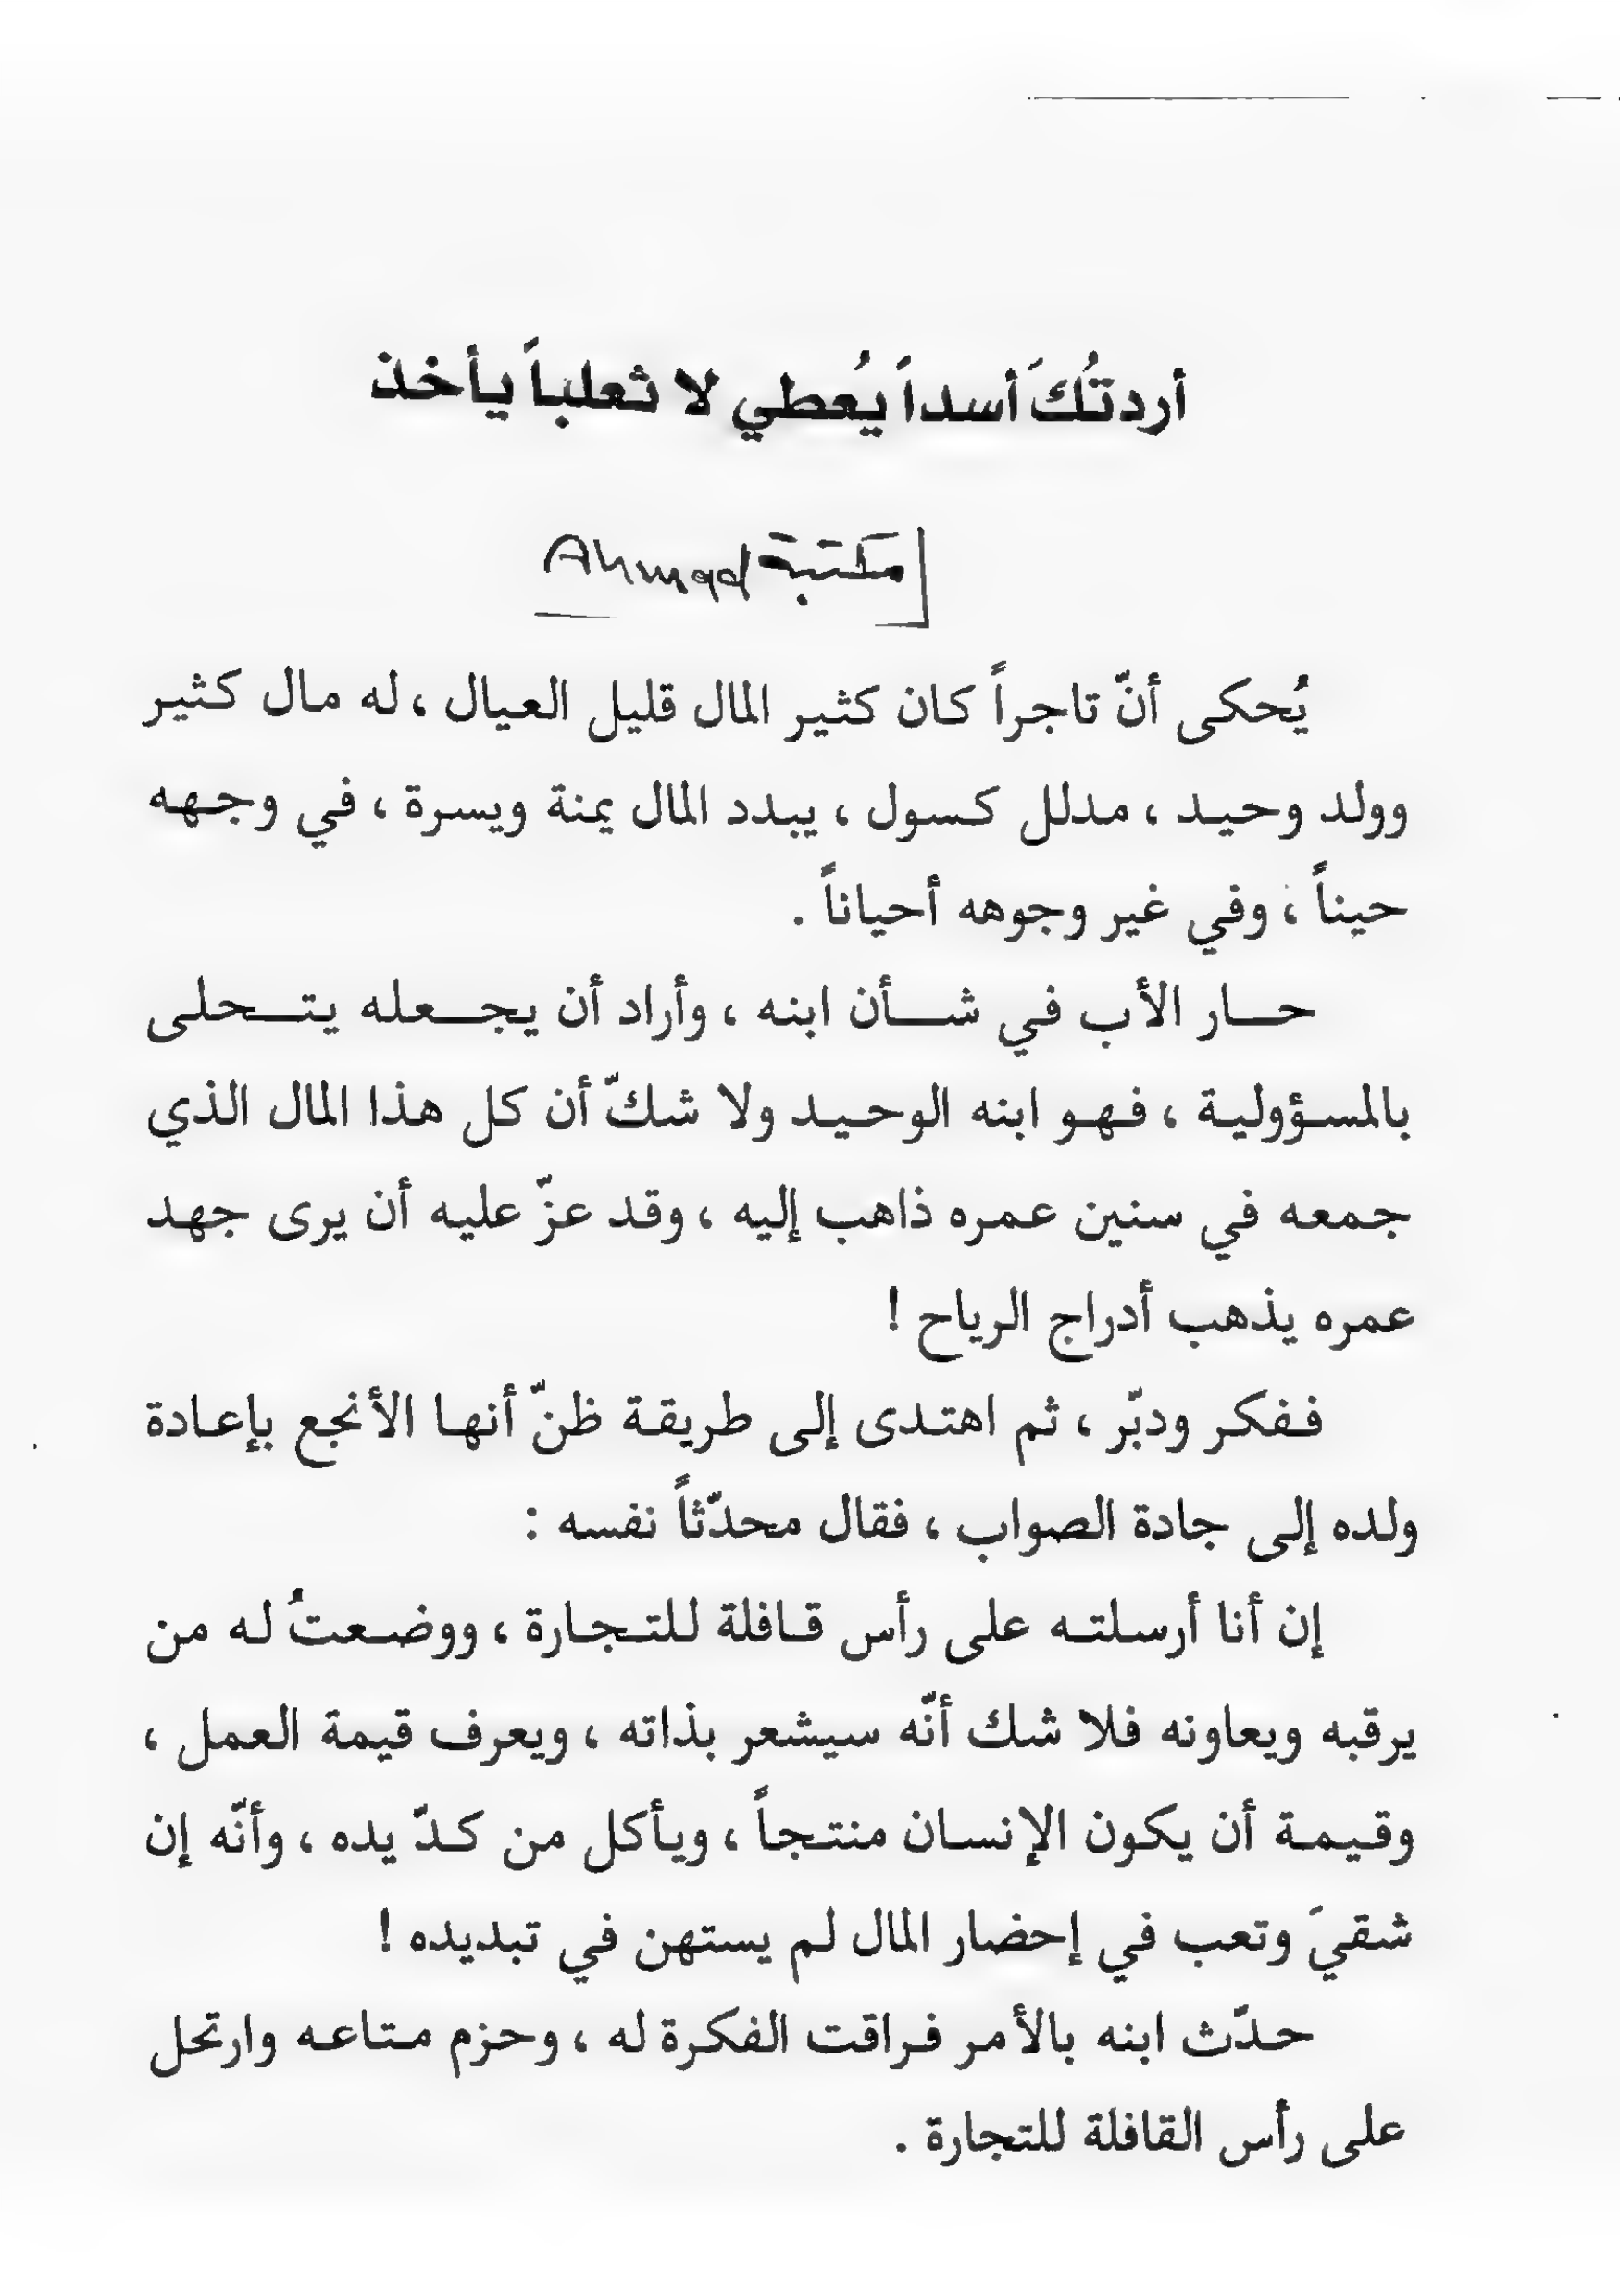 أردتُكَ أسداً يُعطي لا ثعلباً يأخذ
مكتبة Ahmad
يُحكى أنّ تاجراً كان كثير المال قليل العيال ، له مال كثير
وولد وحيد ، مدلل كسول ، يبدد المال يمنة ويسرة ، في وجهه
حيناً ، وفي غير وجوهه أحياناً .
حار الأب في شأن ابنه ، وأراد أن يجعله يتحلى
بالمسؤولية ، فهو ابنه الوحيد ولا شكّ أن كل هذا المال الذي
جمعه في سنين عمره ذاهب إليه ، وقد عزّ عليه أن يرى جهد
عمره يذهب أدراج الرياح !
ففكر ودبّر ، ثم اهتدى إلى طريقة ظنّ أنها الأنجع بإعادة
ولده إلى جادة الصواب ، فقال محدّثاً نفسه :
إن أنا أرسلته على رأس قافلة للتجارة ، ووضعتُ له من
يرقبه ويعاونه فلا شك أنّه سيشعر بذاته ، ويعرف قيمة العمل ،
وقيمة أن يكون الإنسان منتجاً ، ويأكل من كدّ يده ، وأنّه إن
شقيَ وتعب في إحضار المال لم يستهن في تبديده !
حدّث ابنه بالأمر فراقت الفكرة له ، وحزم متاعه وارتحل
على رأس القافلة للتجارة .